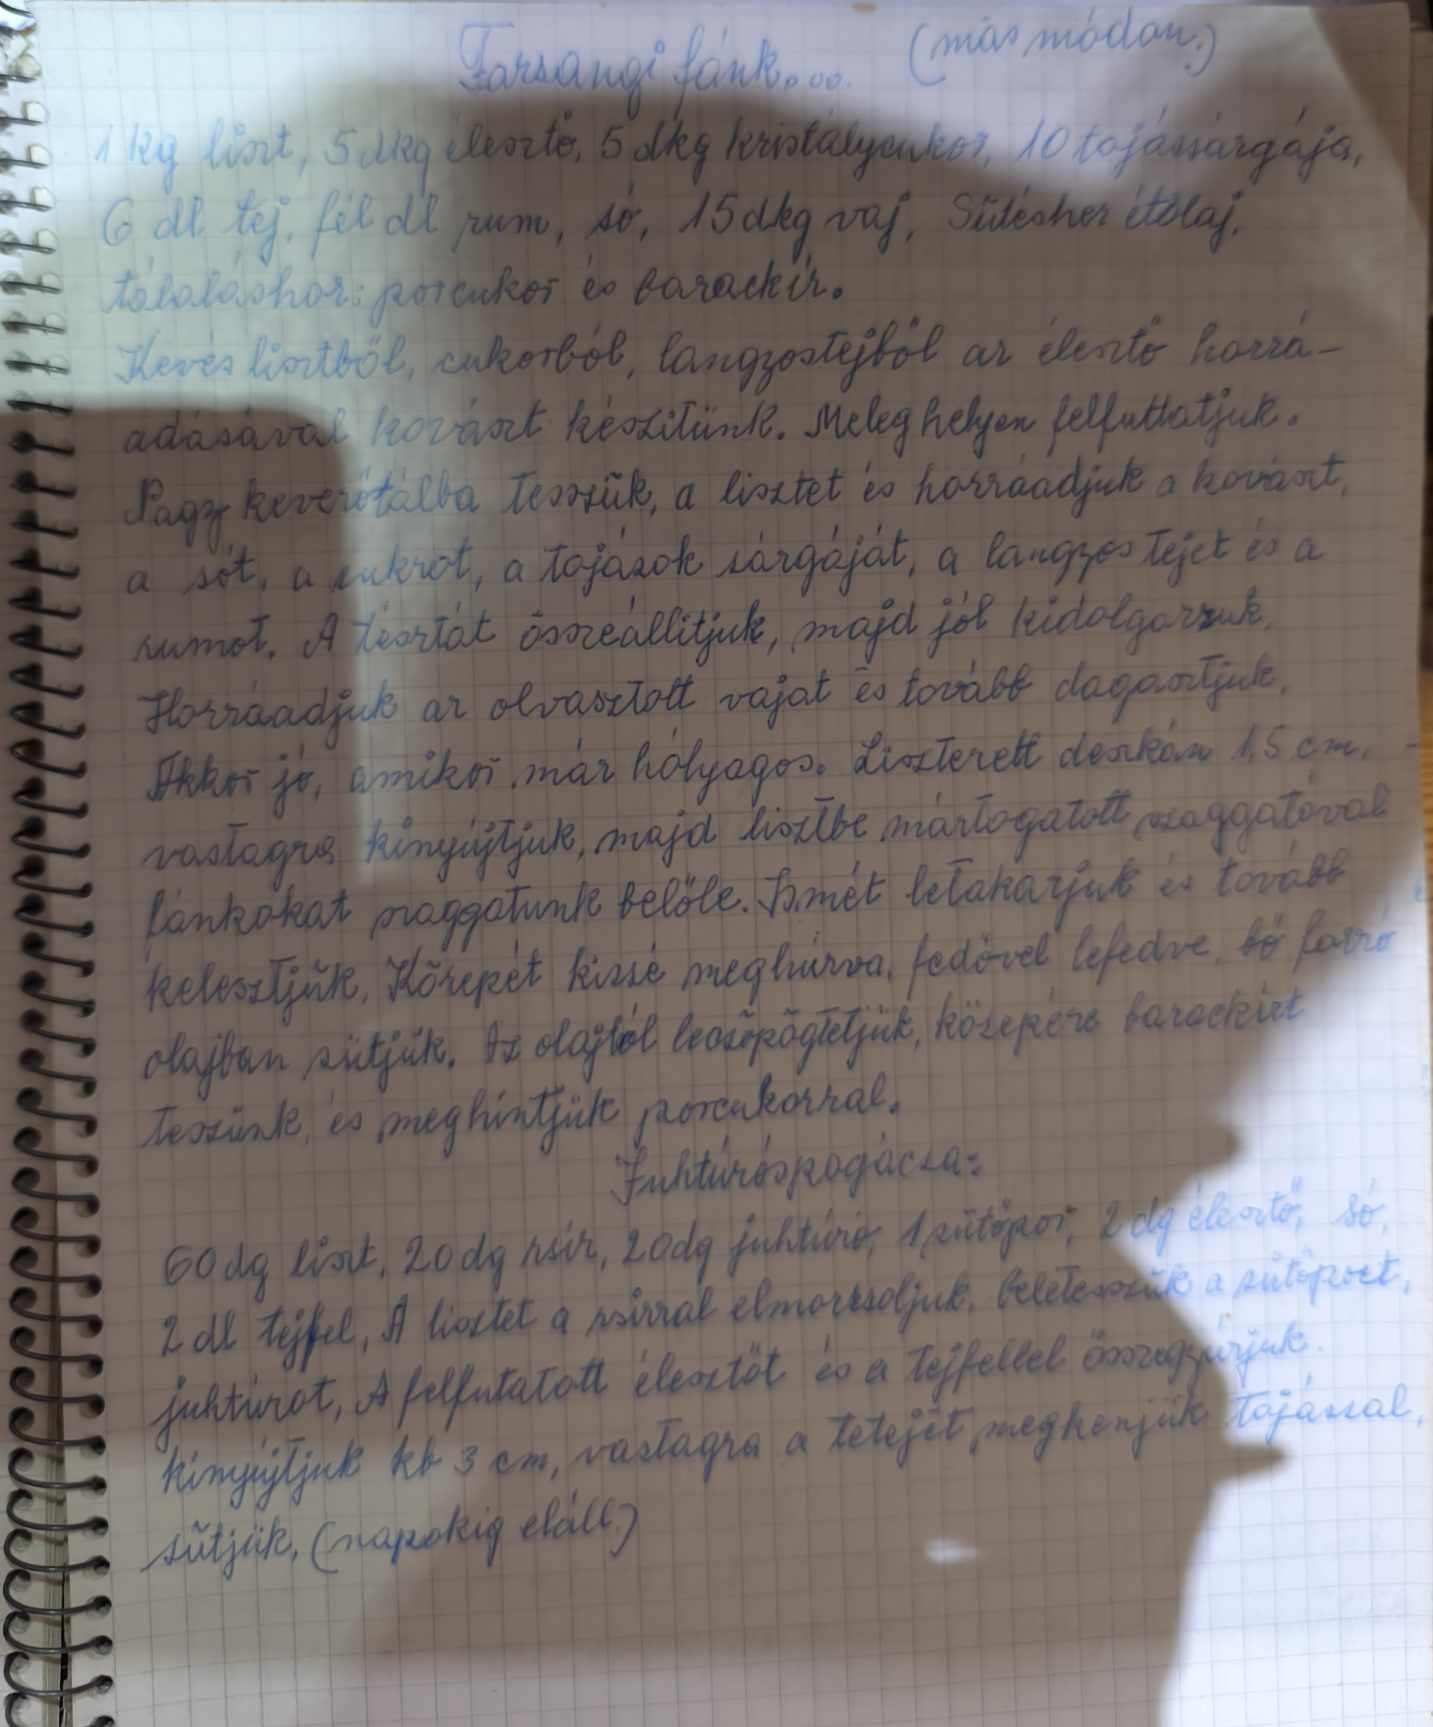 Farsangi fánk.... (más módon.)
1 kg liszt, 5 dkg élesztő, 5 dkg kristálycukor, 10 tojássárgája,
6 dl tej, fél dl rum, só, 15 dkg vaj, Sütéshez étolaj,
tálaláshoz: porcukor és barackíz.
Kevés lisztből, cukorból, langyostejből az élesztő hozzá-
adásával kovászt készítünk. Meleg helyen felfuttatjuk.
Nagy keverőtálba tesszük, a lisztet és hozzáadjuk a kovászt,
a sót, a cukrot, a tojások sárgáját, a langyos tejet és a
rumot. A tésztát összeállítjuk, majd jól kidolgozzuk.
Hozzáadjuk az olvasztott vajat és tovább dagasztjuk.
Akkor jó, amikor már hólyagos. Lisztezett deszkán 1,5 cm.
vastagra kinyújtjuk, majd lisztbe mártogatott szaggatóval
fánkokat szaggatunk belőle. Ismét letakarjuk és tovább
kelesztjük. Közepét kissé meghúzva, fedővel lefedve, bő forró
olajban sütjük. Az olajtól lecsöpögtetjük, közepére barackízt
teszünk, és meghintjük porcukorral.
Juhtúróspogácsa:
60 dg liszt, 20 dg zsír, 20 dg juhtúró, 1 sütőpor, 2 dg élesztő, só,
2 dl tejfel, A lisztet a zsírral elmorzsoljuk, beletesszük a sütőport,
juhtúrót, A felfutatott élesztőt és a tejfellel összegyúrjuk.
kinyújtjuk kb 3 cm, vastagra a tetejét megkenjük tojással,
sütjük. (napokig eláll.)